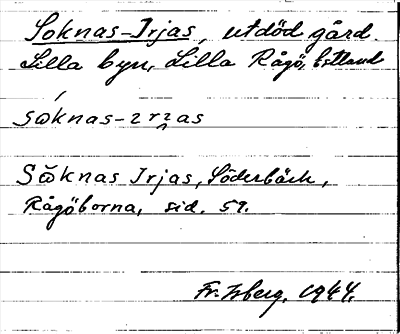 Soknas-Irjas, utdöd gård.
Lilla byn, Lilla Rågö, Estland
Sŏknas Irjas, Söderbäck,
Rågöborna, sid. 59.
Fr. Isberg. 1944.